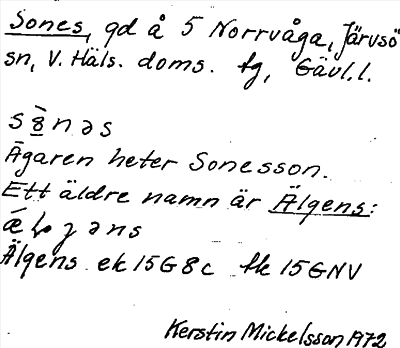 Sones, gd å 5 Norrvåga, Järvsö
sn, V. Häls. doms. tg, Gävl. l.
Ägaren heter Sonesson.
Ett äldre namn är Älgens:
Älgens ek 15G8c fk 15GNV
Kerstin Mickelsson 1972